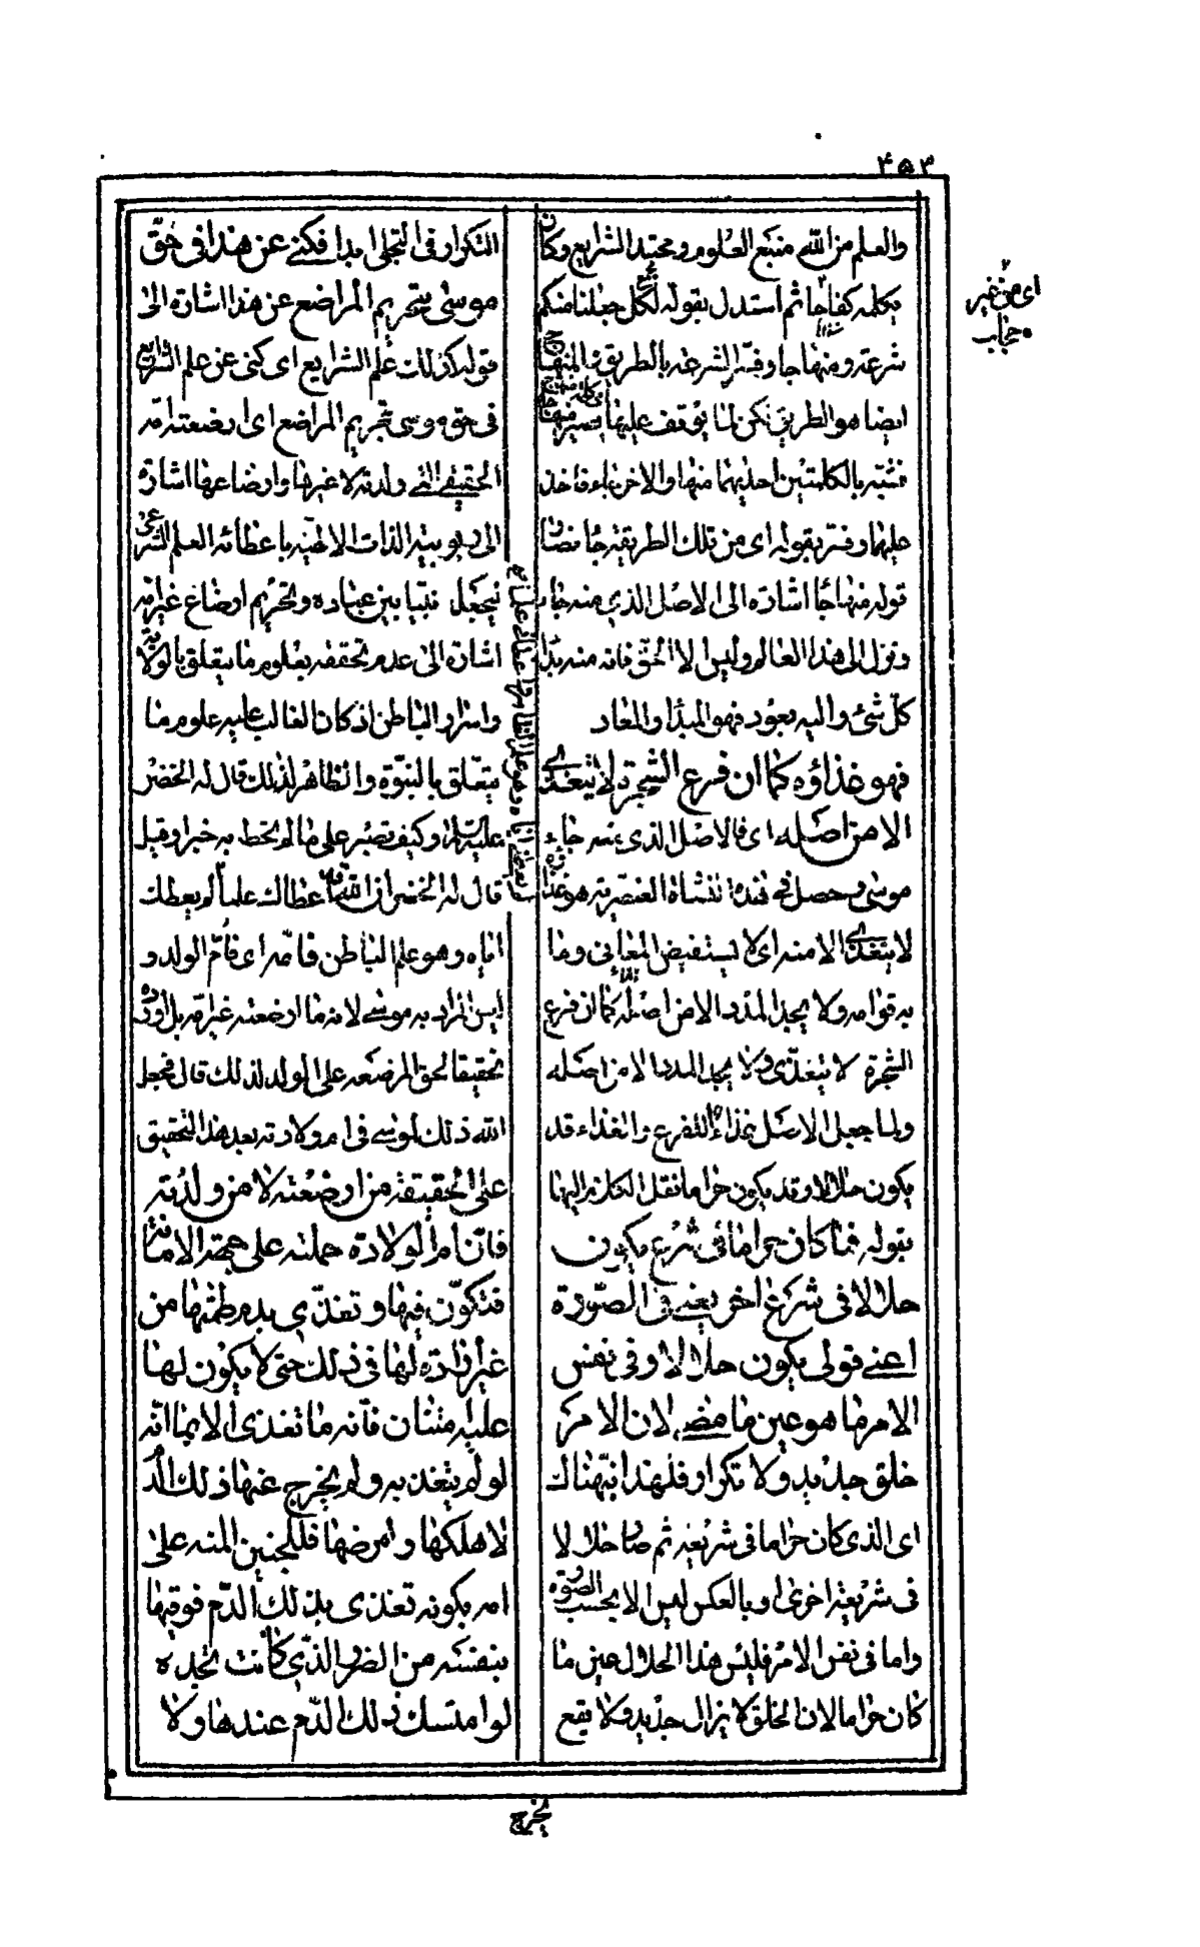 ۴۵۳
والعلم من الله منبع العلوم ومحتد الشرايع وكان
يكلمه كفاحا ثم استدل بقوله لكل جعلنا منكم
شرعة ومنهاجا وفسر الشرعة بالطريقة والمنهاج
ايضا هو الطريق لكن لما يوقف عليها يصير منها جا
فشبه بالكلمتين احديهما منها والاخر جاء فاخذ
عليهما وفسر بقوله اى من تلك الطريقة جا فصار
قوله منهاجا اشارة الى الاصل الذى منه جاء
ونزل الى هذا العالم وليس الا الحق فانه منه بدا
كل شئ واليه يعود فهو المبدا والمعاد
فهو غذاؤه كما ان فرع الشجرة لا يتغذى
الا من اصله اى فالاصل الذى منه جاء
موسى وحصل فى هذه النشاة العنصرية هو غذاؤه
لا يتغذى الا منه اى لا يستفيض المعانى وما
به قوامه ولا يجد المدد الا من اصله كما ان فرع
الشجرة لا يتغذى ولا يجد المدد الا من اصله
ولما جعل الاصل غذاء للفرع والغذاء قد
يكون حلالا وقد يكون حراما نقل الكلام اليها
بقوله فما كان حراما فى شرع يكون
حلالا فى شرع اخر يعنى فى الصورة
اعنى قولى يكون حلالا وفى نفس
الامر ما هو عين ما مضى لان الامر
خلق جديد ولا تكرار فلهذا نبهناك
اى الذى كان حراما فى شريعة ثم صار حلالا
فى شريعة اخرى او بالعكس ليس الا بحسب الصورة
واما فى نفس الامر فليس هذا الحلال عين ما
كان حراما لان الخلق لا يزال جديد ولا يقع
التكرار فى التجلى ابدا فكنى عن هذا فى حق
موسى بتحريم المراضع عن هذا اشارة الى
قوله كذلك علم الشرايع اى كنى عن علم الشرايع
فى حق موسى بتحريم المراضع اى ارضعته امه
الحقيقى التى ولدته لا غيرها وارضاعها اشارة
الى ربوبية الذات الالهية باعطائه العلم الشرعى
ليجعل نبيا بين عباده وتحريم ارضاع غير امه
اشارة الى عدم تحققه بعلوم ما يتعلق بالولاية
واسرار الباطن اذ كان الغالب عليه علوم ما
يتعلق بالنبوة والظاهر لذلك قال له الخضر
عليه السلام وكيف تصبر على ما لم تحط به خبرا وقيل
قال له الخضر ان الله اعطاك علما لم يعطك
اياه وهو علم الباطن فامه اى فام الولد و
ليس المراد به موسى لانه ما ارضعته غير امه بل اورده
تحقيقا لحق المرضعة على الولد لذلك قال فجعل
الله ذلك لموسى فى ام ولادته بعد هذا التحقيق
على الحقيقة من ارضعته لا من ولدته
فان ام الولادة حملته على جهة الامانة
فتكون فيها وتغذى بدم طمثها من
غير ارادة لها فى ذلك حتى لا يكون لها
عليه امتنان فانه ما تغذى الا بما انه
لو لم يتغذ به ولم يخرج عنها ذلك الدم
لاهلكها وامرضها فللجنين المنة على
امه بكونه تغذى بذلك الدم فوقيها
بنفسه من الضرر الذى كانت تجده
لو امتسك ذلك الدم عندها ولا
اى من غير
حجاب
يخرج